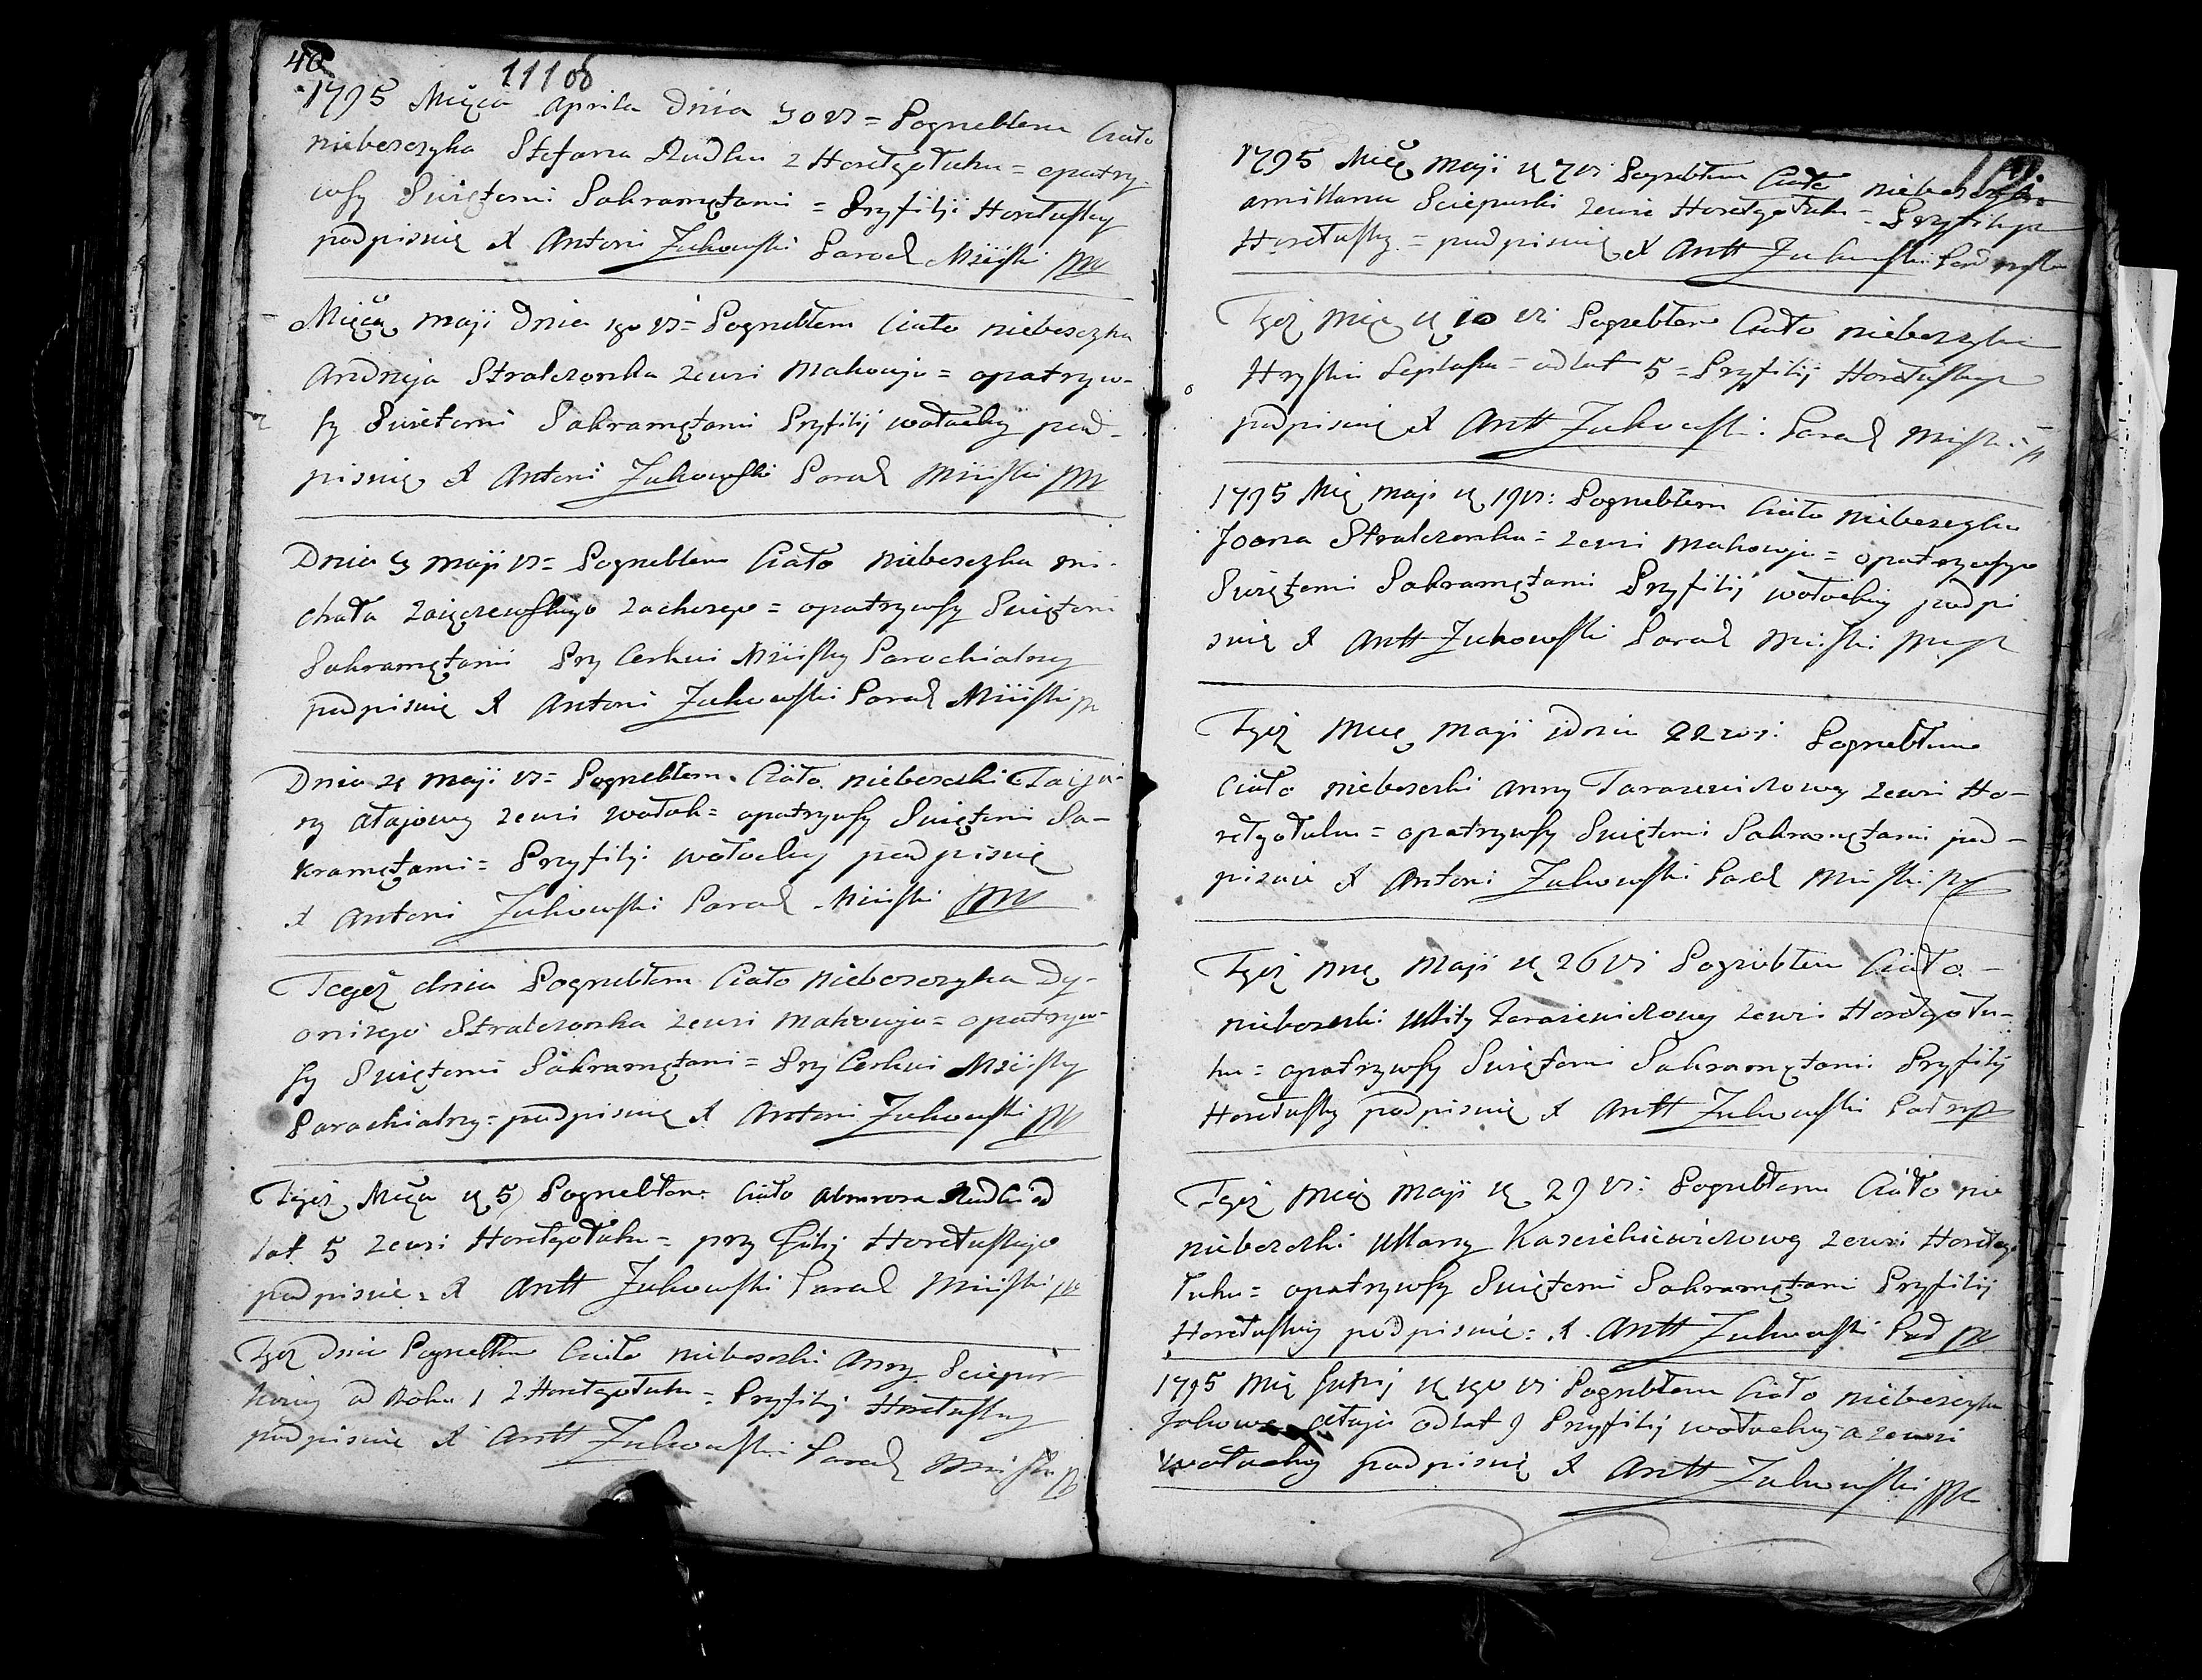 40
11108
1795 Mięca Aprila Dnia 30 vs = Pogrzebłem Ciało
niebosczyka Stefana Rudka z Horełgołuhu = opatrzy
wszy Swiętemi Sakramętami = Przyfilji Horełuskey
podpisuię X Antoni Żukowski Paroch Mśiiski mp
Mięca maji Dnia 1go vs = Pogrzebłem Ciało niebosczyka
Andreja Stralczonka zewsi Makowja = opatrzyw-
szy Swiętemi Sakramętami Przyfilij wołockey pod-
pisuię X Antoni Żukowski Paroch Mśiiski mp
Dnia 3 maji vs = Pogrzebłem Ciało niebosczyka mi-
chała Zaięczewskiego = opatrzywszy Swiętemi
Sakramętami Przy Cerkwi Mśiiskey Parochialney
podpisuię X Antoni Żukowski Paroch Mśiiski mp
Dnia 4 maji vs = Pogrzebłem Ciało niebosczki
ny Ałajowey zewsi wołok = opatrzywszy Swiętemi Sa-
kramętami = Przyfilji wołockey podpisuię
X Antoni Żukowski Paroch Mśiiski mp
Tegoż dnia Pogrzebłem Ciało niebosczyka Dy-
onizego Stralczonka zewsi makowja = opatrzyw-
szy Swiętemi Sakramętami = Przy Cerkwi Mśiiskey
Parochialney = podpisuię X Antoni Żukowski mp
Tegoż Mięca 5 Pogrzebłem Ciało Abmroza Rudka od
lat 5 zewsi Horełgołuhu = przy Filij Horełuskiey
podpisuię = X Antt Żukowski Paroch Mśiiski mp
Tegoż Dnia Pogrzebłem Ciało niebosczki Anny Sciepur
kowny od Roku 1 z Horełgołuhu = Przyfilij Horełuskey
podpisuię X Antt Żukowski Paroch Mśiiski mp
1795 Mięc maji 7 vs Pogrzebłem Ciało niebosczyka
amiliana Sciepurki zewsi Horełgołuhu = Przyfilij
Horełuskey = podpisuię X Antt Żukowski
Tegoż mię 10 vs Pogrzebłem Ciało niebosczyka
Hryszki = od lat 5 = Przyfilij Horełuskey
podpisuię X Antt Żukowski Paroch Mśiiski
1795 Mię maji 19 vs: Pogrzebłem Ciało niebosczyka
Joana Stralczonka = zewsi makowja = opatrzywszy
Swiętemi Sakramętami Przyfilij wołockey podpi
suię X Antt Żukowski Paroch Mśiiski mp
Tegoż Mię maji dnia 22 vs: Pogrzebłem
Ciało niebosczki Anny Tarasewiczowey zewsi Ho-
rełgołuhu = opatrzywszy Swiętemi Sakramętami pod-
pisuie X Antoni Żukowski Paroch Mśiiski mp
Tegoż mię maji 26 vs Pogrzebłem Ciało
niebosczki Ullity Tarasewiczowey zewsi Horełgołu-
hu = opatrzywszy Swiętemi Sakramętami Przyfilij
Horełuskey podpisuię X Antt Żukowski
Tegoż mię maji 29 vs: Pogrzebłem Ciało nie
niebosczki Ullany Kascickiewiczowey zewsi Horełgo
łuhu = opatrzywszy Swiętemi Sakramętami Przyfilij
Horełuskey podpisuię = X Antt Żukowski mp
1795 Mię Junij 1go vs Pogrzebłem Ciało niebosczyka
Jakowa Ałaja od lat 9 Przyfilij wołockey = a zewsi
wołocky podpisuię X Antt Żukowski mp